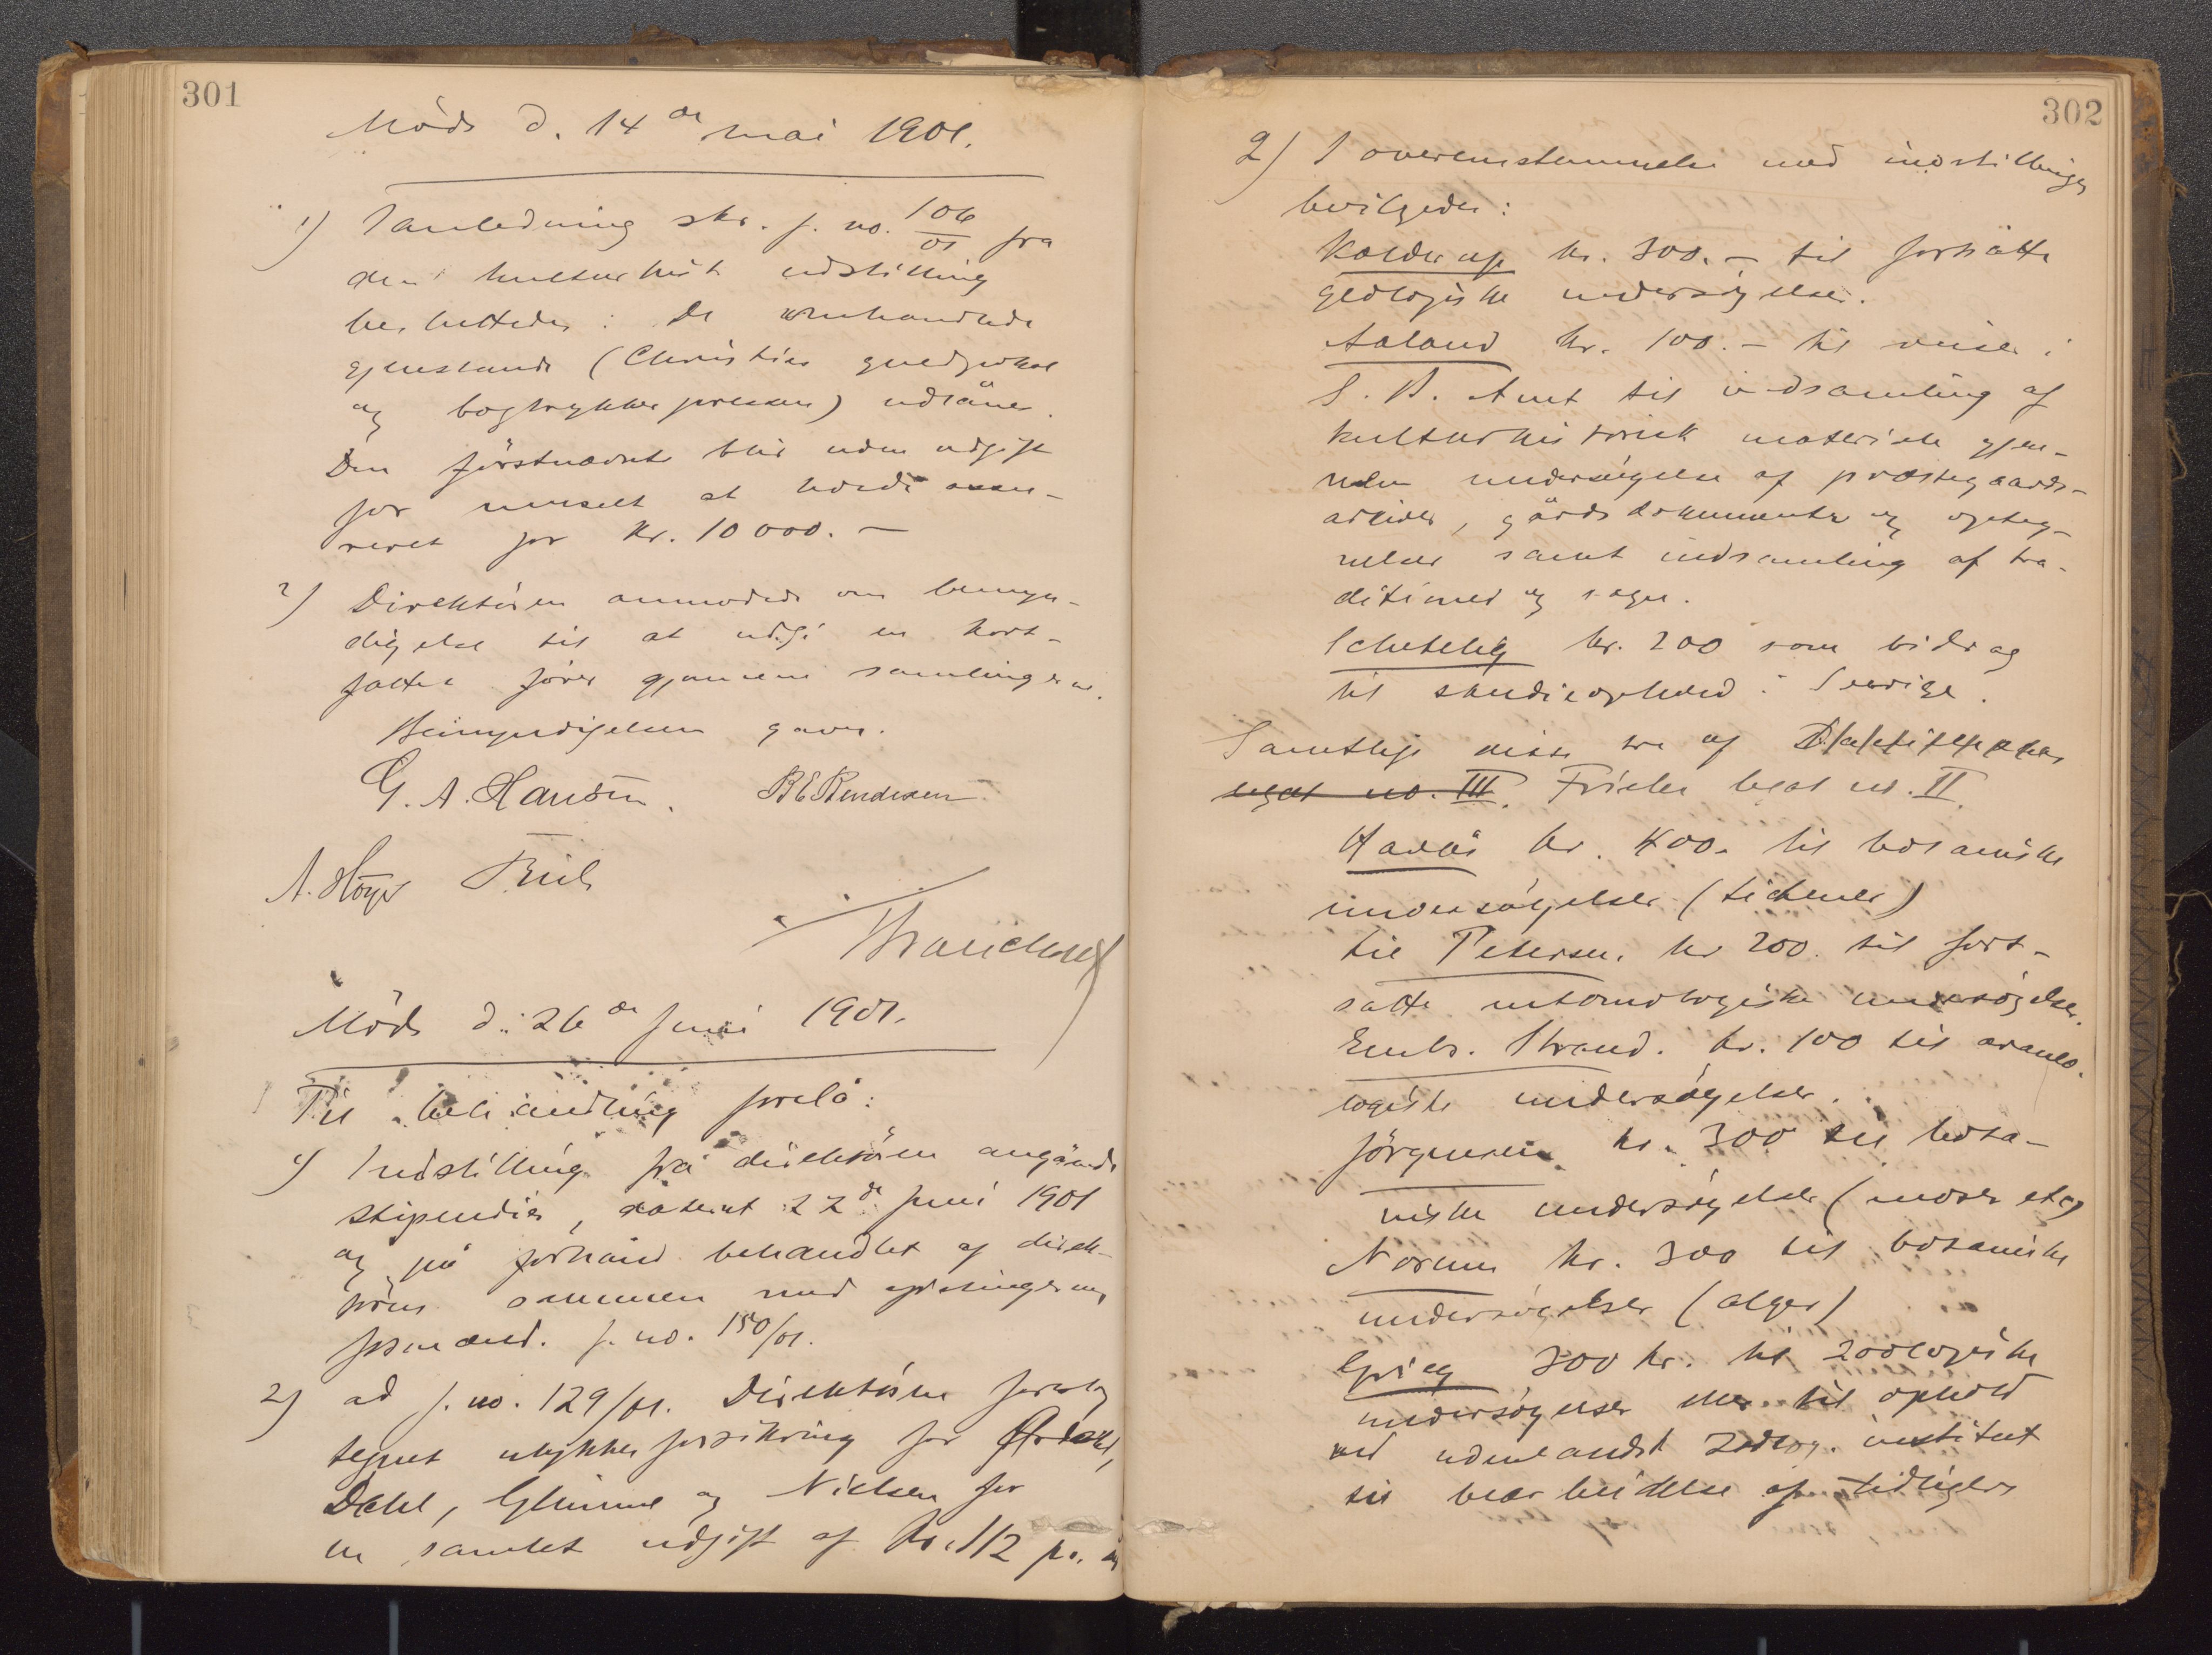 301
Møde d. 14de mai 1901.
1) I anledning skr. j. no. 106/01 fra
den kulturhist. udstilling
besluttedes: De omhandlede
gjenstande (Christies guldpokal
og bogtrykkerpressen) udlånes.
Den førstnævnte blir uden udgift
for museet at holde assu-
reret for kr. 10 000. —
2) Direktøren anmodede om bemyn-
digelse til at udgi en kort-
fattet fører gjennem samlingerne.
Bemyndigelsen gaves.
G. A. Hansen. B E Bendixen
A. Høyer
Møde d. 26de juni 1901.
Til behandling forelå:
1) Indstilling fra direktøren angående
stipendier, dateret 22de juni 1901
og på forhånd behandlet af direk-
tøren sammen med afdelingernes
formænd. j. no. 150/01.
2) ad j. no. 129/01. Direktøren foreslog
tegnet ulykkesforsikring for
Dahl, Glimme og Nielsen for
en samlet udgift af kr. 112 pr. år
302
2) I overensstemmelse med indstillingen
bevilgedes:
Kolderup kr. 300. — til fortsatte
geologiske undersøgelser.
Aaland kr. 100. — til reiser i
S. B. Amt til indsamling af
kulturhistorisk materiale gjen-
nem undersøgelse af præstegaards-
arkiver, gårdsdokumenter og opteg-
nelser samt indsamling af tra-
ditioner og sagn.
Schetelig kr. 200 som bidrag
til studieophold i Sverige.
Samtlige disse tre af
legat no. III. Frieles legat no. II.
Havås kr. 400. til botaniske
undersøgelser (lichener)
til Petersen. kr 200. til fort-
satte entomologiske undersøgelser.
Emb. Strand. kr. 100 til arachno-
logiske undersøgelser.
Jørgensen kr. 300 til bota-
niske undersøgelser (moser etc)
Norum kr. 300 til botaniske
undersøgelser (alger)
Grieg 300 kr. til zoologiske
undersøgelser eller til ophold
ved udenlandsk zoolog. institut
til bearbeidelse af tidligere